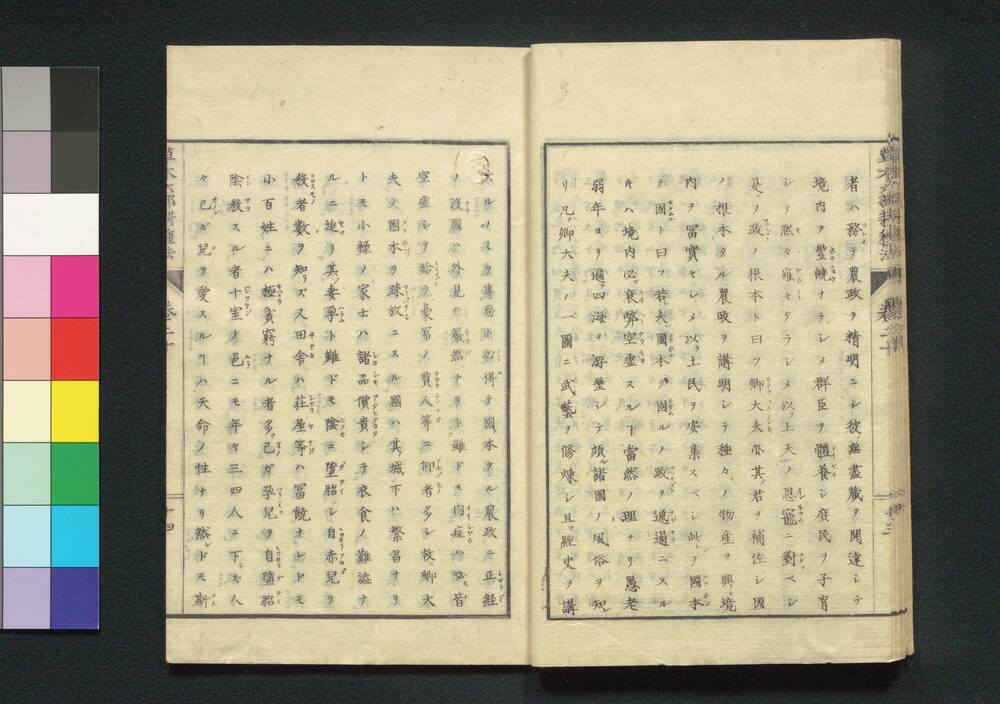 者ハ務テ農政ヲ精明ニシ彼無盡藏ヲ開達シテ
境内ヲ豐饒ナラシメ群臣ヲ體養シ庶民ヲ子育
シテ熙々雍々タラシメ以上天ノ恩寵ニ對ベシ
是ヲ政ノ根本ト曰フ卿大夫亦其君ヲ補佐シ國
ノ根本タル農政ヲ講明シテ種々ノ物産ヲ興境
内ヲ冨實セシメ以土民ヲ安集スベシ此ヲ國本
ヲ固ト曰フ若夫國本ヲ固ルノ政ヲ遞過ニスル
キハ境内必衰弊空虛スルコ當然ノ理ナリ愚老
弱年ヨリ遍四海ヲ游歴シテ頗諸國ノ風俗ヲ知
リ凡卿大夫ノ一圖ニ武藝ヲ修煉シ且經史ヲ講
スルノミヲ專務ト心得テ國本タル農政ニ正經
ノ没國ハ外見ハ嚴然ナリト雖ドモ内症ハ必皆
空虛シテ給ヲ豪冨ノ賈人等ニ仰者多シ故卿大
夫ノ國本ヲ疎放ニスル國ハ其城下ハ繁昌ナリ
トモ小禄ノ家士ハ諸品價貴シテ衣食ノ難澁ナ
ルニ迫リ其妻孕ト雖ドモ陰ニ墮胎シ自赤兒ヲ
殺者數ヲ知ラズス田舍ハ莊屋等ハ冨饒ナレドモ
小百姓ニハ極貪窮ナル者多己ガ孕兒ヲ自墮胎
陰殺スル者十室ノ邑ニモ年々三四人ニ下ズ人
々己ガ兒ヲ愛スルコハ天命ノ性ナリ然ドモ斯
草木六部耕種法
卷二
十四